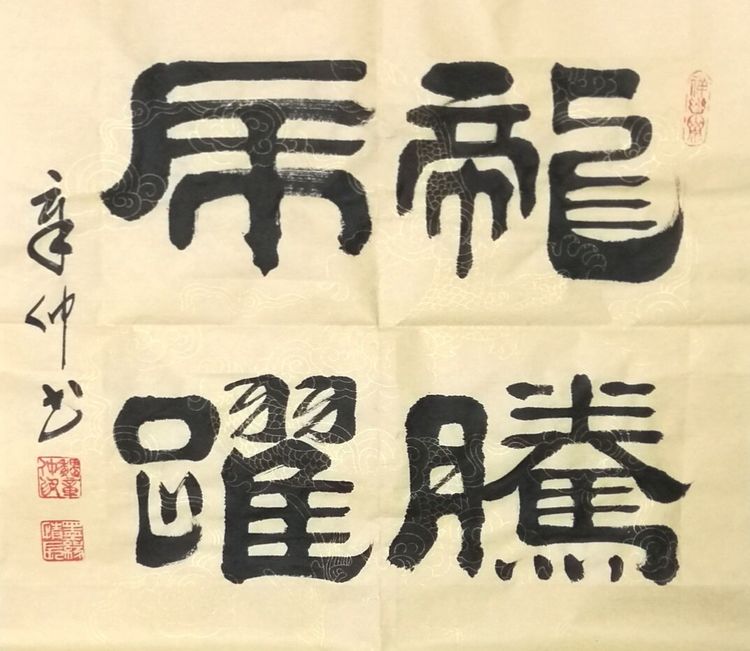 龍騰
虎躍
章仲书